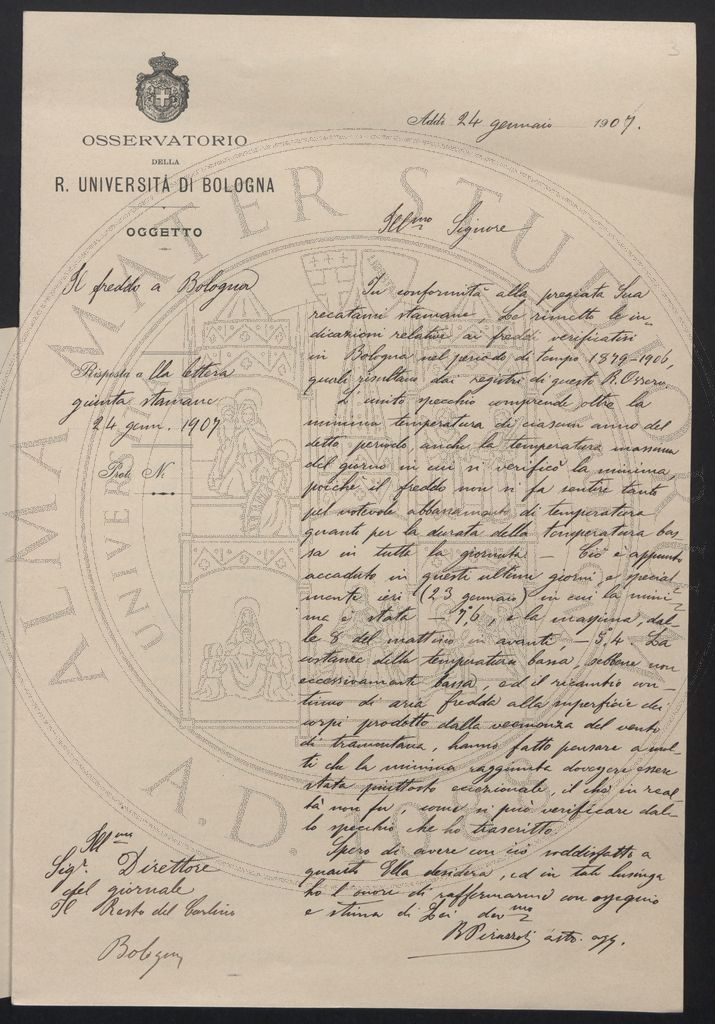 3
Addì 24 gennaio 1907.
OSSERVATORIO
DELLA
R. UNIVERSITÀ DI BOLOGNA
OGGETTO
Il freddo a Bologna
Risposta a lla lettera
giunta stamane
24 genn. 1907
Prot. N.
Ill.mo Signore
In conformità alla pregiata Sua
recatami stamane, Le rimetto le in-
dicazioni relative ai freddi verificatisi
in Bologna nel periodo di tempo 1879-1906,
quali risultano dai registri di questo R. Osserv.
L'unito specchio comprende oltre la
minima temperatura di ciascun anno del
detto periodo, anche la temperatura massima
del giorno in cui si verificò la minima,
poichè il freddo non si fa sentire tanto
pel notevole abbassamento di temperatura
quanto per la durata della temperatura bas
sa in tutta la giornata — Ciò è appunto
accaduto in questi ultimi giorni e special
mente ieri (23 gennaio) in cui la mini-
ma è stata — 7°,6, e la massima, dal-
le 8 del mattino in avanti, — 5°,4. La
costanza della temperatura bassa, sebbene non
eccessivamente bassa, ed il ricambio con-
tinuo di aria fredda alla superficie dei
corpi prodotto dalla veemenza del vento
di tramontana, hanno fatto pensare a mol-
ti che la minima raggiunta dovesse essere
stata piuttosto eccezionale, il che in real
tà non fu come si può verificare dal-
lo specchio che ho trascritto.
Spero di avere con ciò soddisfatto a
quanto Ella desidera, ed in tale lusinga
ho l'onore di raffermarmi con ossequio
e stima di Lei dev.mo
astr. agg.
Ill.mo
Sig.r Direttore
del giornale
Il Resto del Carlino
Bologna
ALMA MATER STUDIORUM
A.D. 1088